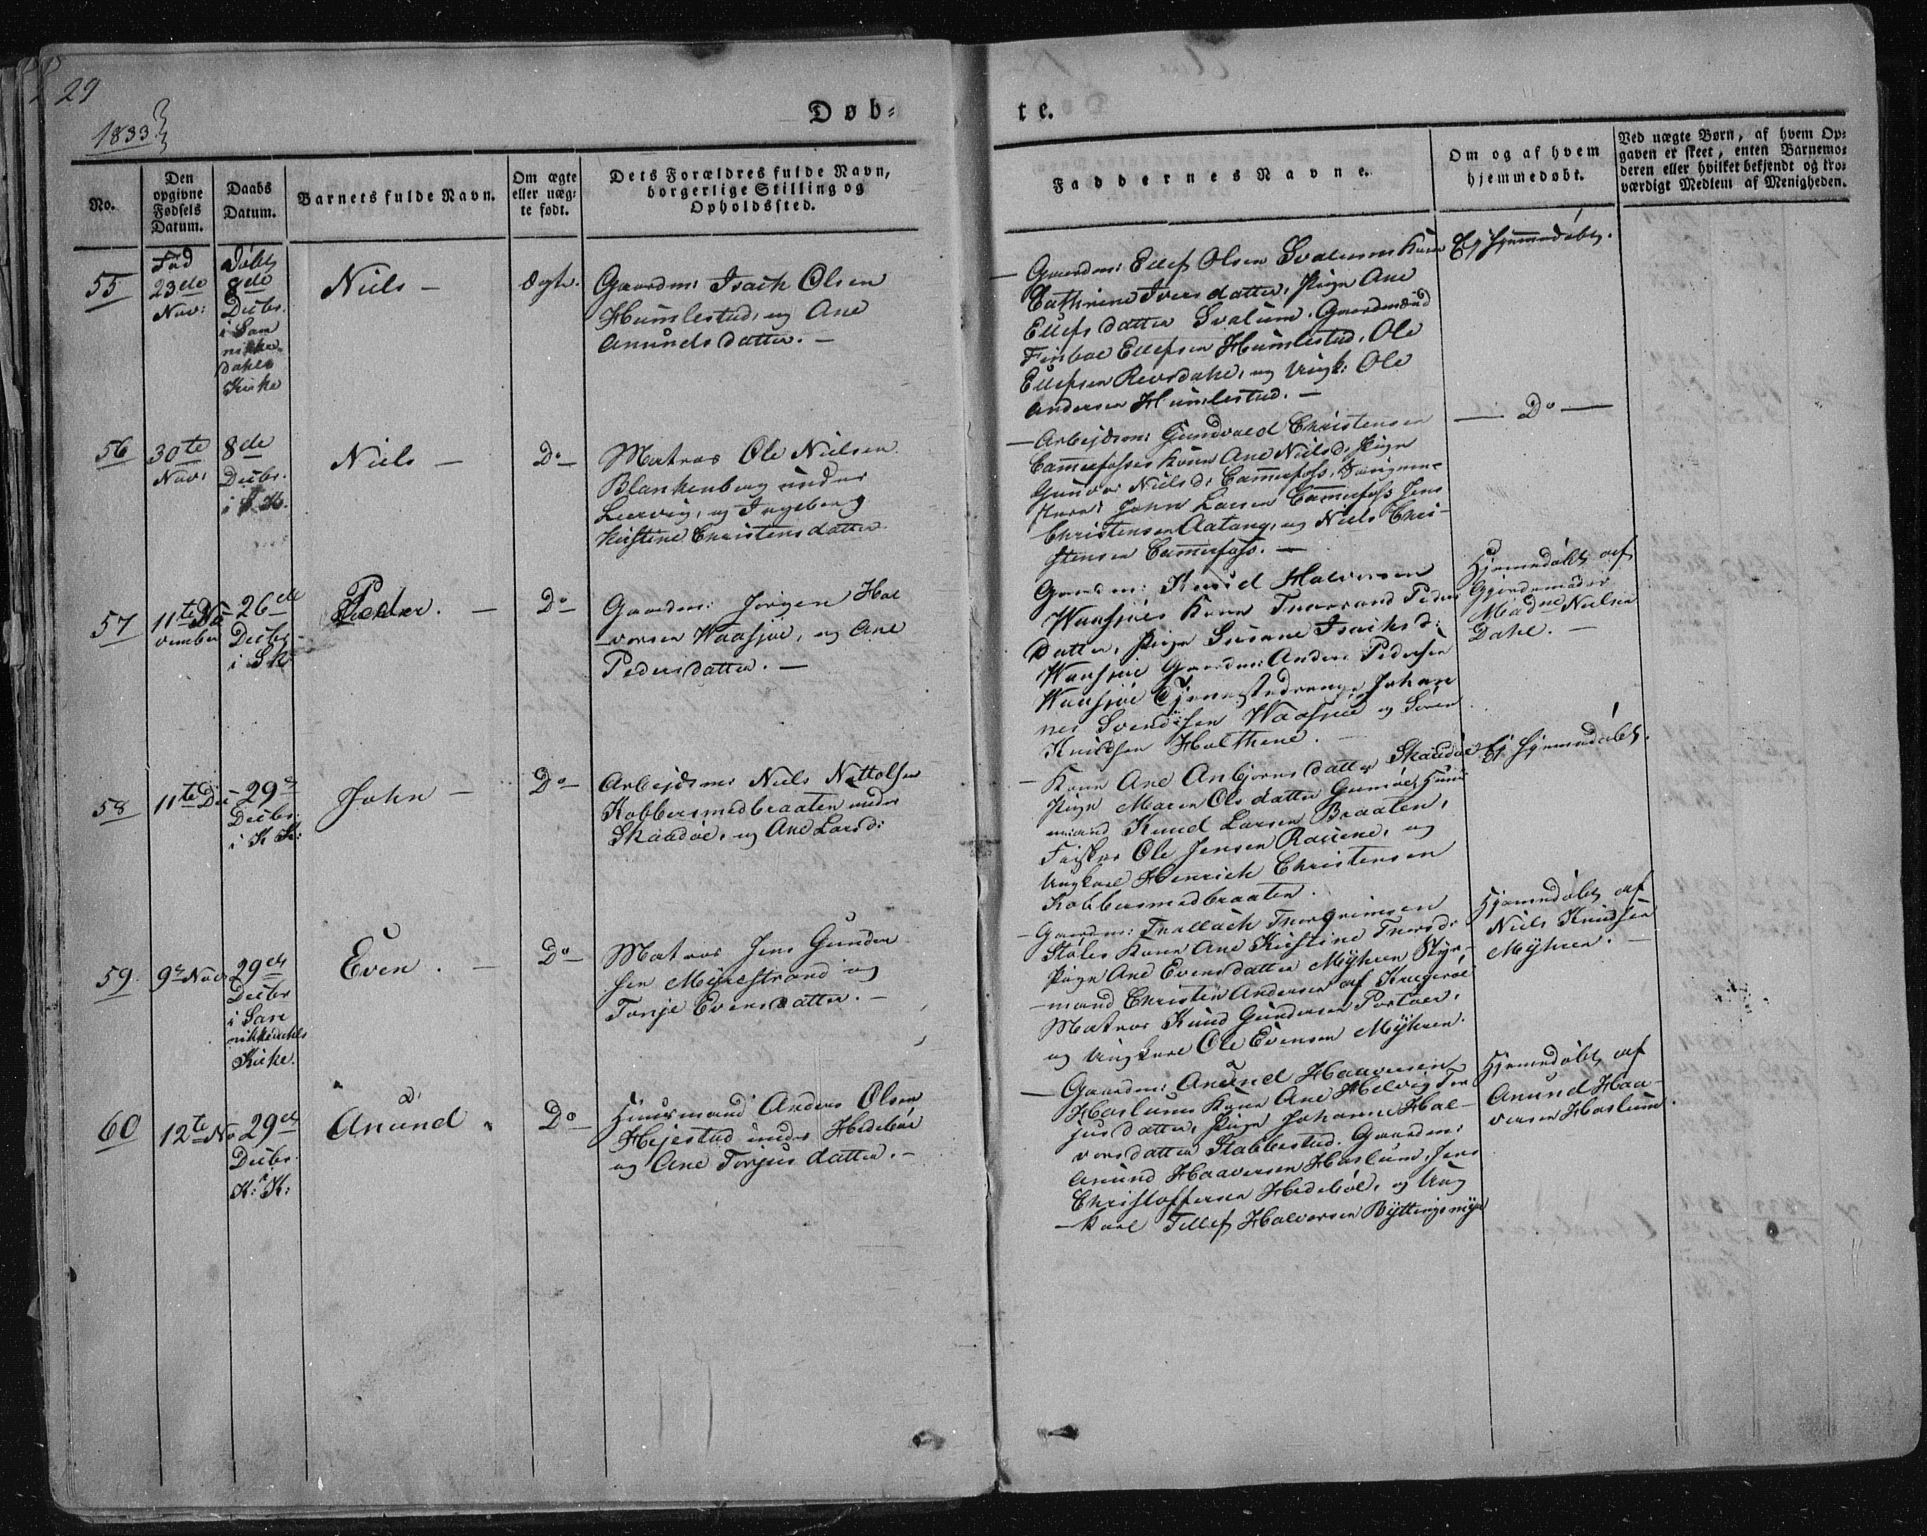 29
1833
Døb-
te.
No.
Den opgivne Fødsels Datum.
Daabs Datum.
Barnets fulde Navn.
Om ægte eller uægte født.
Dets Forældres fulde Navn, borgerlige Stilling og Opholdssted.
Faddernes Navne.
Om og af hvem hjemmedøbt.
Ved uægte Børn, af hvem Opgaven er skeet, enten Barnemoderen eller hvilket bekjendt og troværdigt Medlem af Menigheden.
55
Fød
23de
Nov:
Døbt
8de
Decbr.
i San
nikke-
dahls
Kirke
Niels —
Ægte.
Gaardm: Isach Olsen
Humlestad, og Ane
Amundsdatter. —
Gaardm: Ellef Olsen Svalums Kone
Cathrine Iversdatter, Pige Ane
Ellefsdatter Svalum, Gaardmænd
Finboe Ellefsen Humlestad, Ole
Ellefsen Revsdahl, og Ungk: Ole
Andersen Humlestad. —
Ej hjemmedøbt.
56
30te
Nov:
8de
Decbr.
i S. K.
Niels —
Do —
Matros Ole Nielsen
Blankenberg under
Leervig, og Ingeborg
Kirstine Christensdatter
Arbejdsm: Gundvald Christensen
Camerfosses Kone Ane Nielsd, Pige
Gunvor Nielsd: Camerfoss,
John Larsen Camerfoss Jens
Christensen Aatang, og Niels Chri-
stensen Camerfoss. —
— Do —
57
11te No-
vember
26de
Decbr.
i Sk
Peder. —
Do —
Gaardm: Jörgen Hal
vorsen Waasjöe, og Ane
Pedersdatter. —
Gaardm: Knud Halvorsen
Waasjöes Kone Thorand Peders
datter, Pige Susane Isachsd:
Waasjöe Gaardm: Anders Pedersen
Waasjöe Tjenestedrenge Johan
nes Svendsen Waasjöe og Sören
Knudsen Halthene. —
Hjemedøbt af
Gjordemoder
Madme Nielsen
Dahl. —
58
11te Dec
29d
Decbr
i K K:
John —
Do —
Arbejdsm: Niels Nottolfsen
Kobbersmedbraaten under
Skaadöe, og Ane Larsd:
Kone Ane Anbjørnsdatter Skaadöe
Pige Maren Olsdatter Gumöe, Huus
mand Knud Larsen Braaten,
Fisker Ole Jensen Rauene, og
Ungkarl Henrich Christensen
Kobbersmedbraaten.
Ej hjemedøbt.
59
9de Nov
29de
Decbr
i San
nikkedahls
Kirke.
Even. —
Do —
Matros Jens Gunder
sen Myrestrand og
Tonje Evensdatter. —
Gaardm: Thallach Thorgrimsen
Støles Kone Ane Kirstine Thorsd:
Pige Ane Evensdatter Myhren Styr-
mand Christen Andersen af Kragerøe
Matros Knud Gundersen Portöer,
og Ungkarl Ole Evensen Myhren.
Hjemedøbt af
Niels Knudsen
Myhren. —
60
12te No
29de
Decbr.
K: K:
Anund
Do —
Huusmand Anders Olsen
Hejestad under Hedeböe
og Ane Torjusdatter. —
Gaardm: Anund Haavorsen
Haslums Kone Ane Helvig Tor
jusdatter, Pige Johanne Hal-
vorsdatter Stabbestad. Gaardm:
Anund Haavorsen Haslum, Jens
Christoffersen Hedeböe, og Ung
karl Tellef Halvorsen Byttingsmyr
Hjemedøbt af
Anund Haa-
vorsen Haslum.